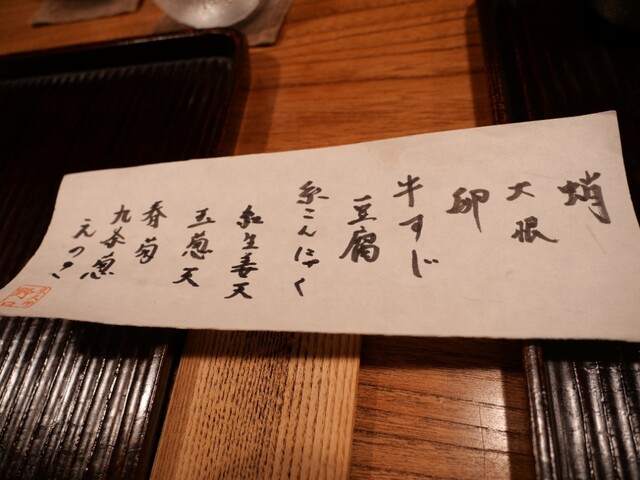 蛸
大根
卵
牛すじ
豆腐
糸こんにゃく
紅生姜天
玉葱天
春菊
九条葱
えのき